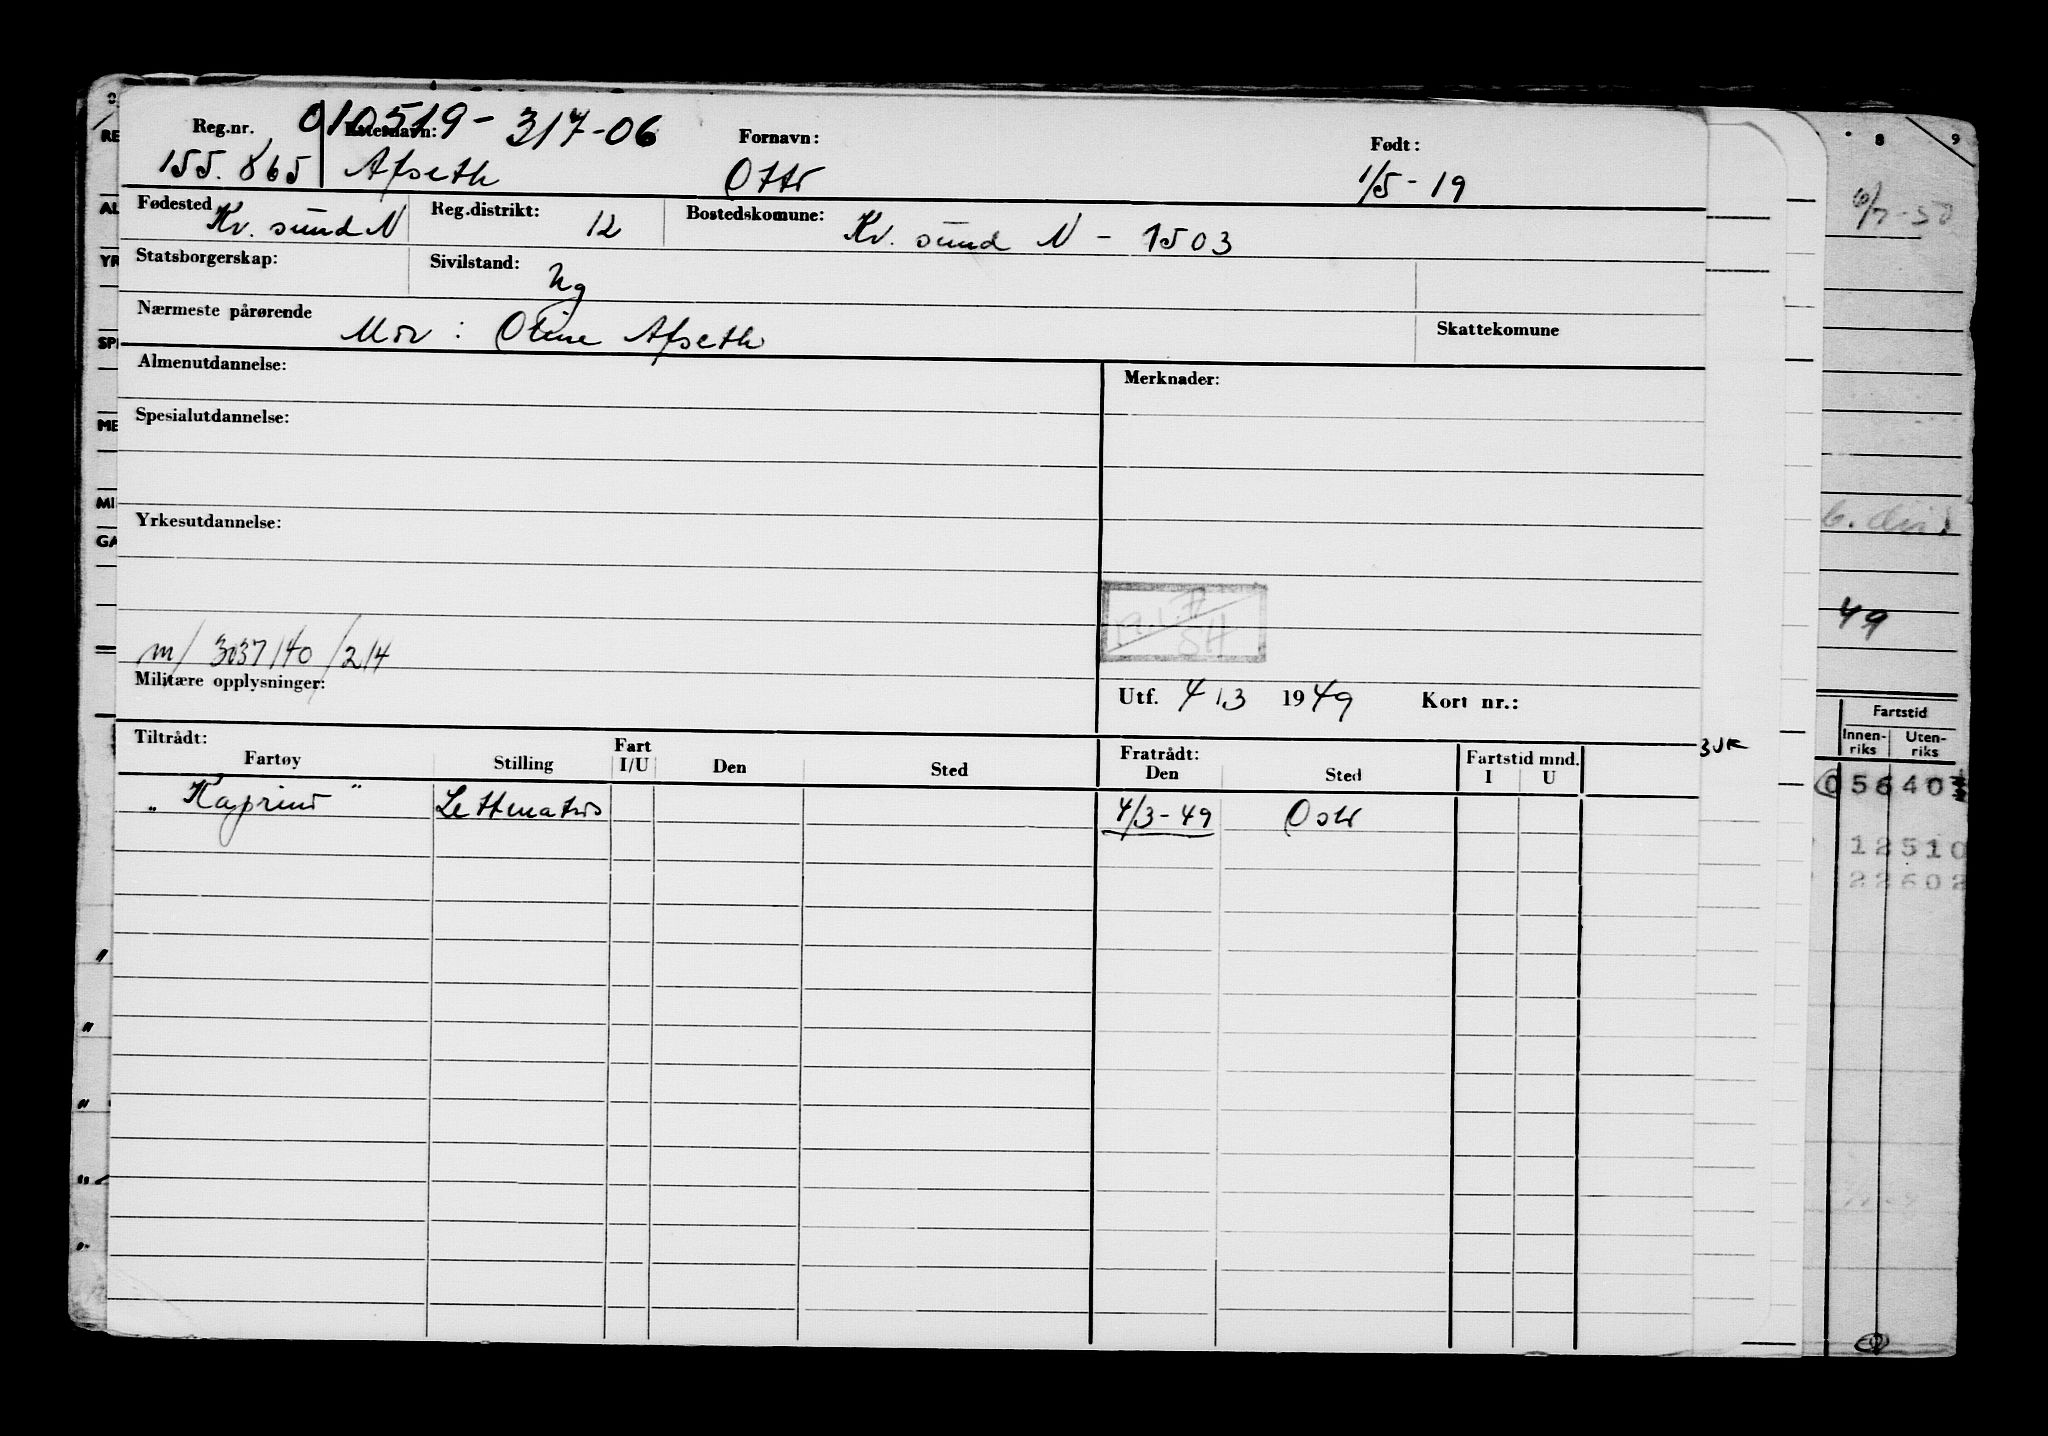 010519-317-06
Reg.nr. Etternavn: Fornavn: Født:
155.865 Afseth Otto 1/5-19
Fødested Kv. sund N Reg.distrikt: 12 Bostedskomune: Kv. sund N - 1503
Statsborgerskap: Sivilstand: Ug
Nærmeste pårørende Mor: Oline Afseth Skattekomune
Almenutdannelse: Merknader:
Spesialutdannelse:
Yrkesutdannelse:
m/ 3037/40/214
Militære opplysninger: Utf. 4/3 1949 Kort nr.:
Tiltrådt: Fratrådt:
Fartøy Stilling Fart I/U Den Sted Den Sted Fartstid mnd. I U
Lettmatros 4/3-49 Oslo
8 9
6. div.
49
Fartstid
Innen-riks Uten-riks
05640
12510
22602